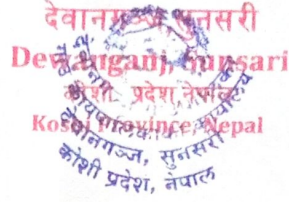 देवानगञ्ज, सुनसरी
Dewanganj, Sunsari
कोशी प्रदेश, नेपाल
Koshi Province, Nepal
कार्यपालिकाको कार्यालय
देवानगञ्ज, सुनसरी
कोशी प्रदेश, नेपाल